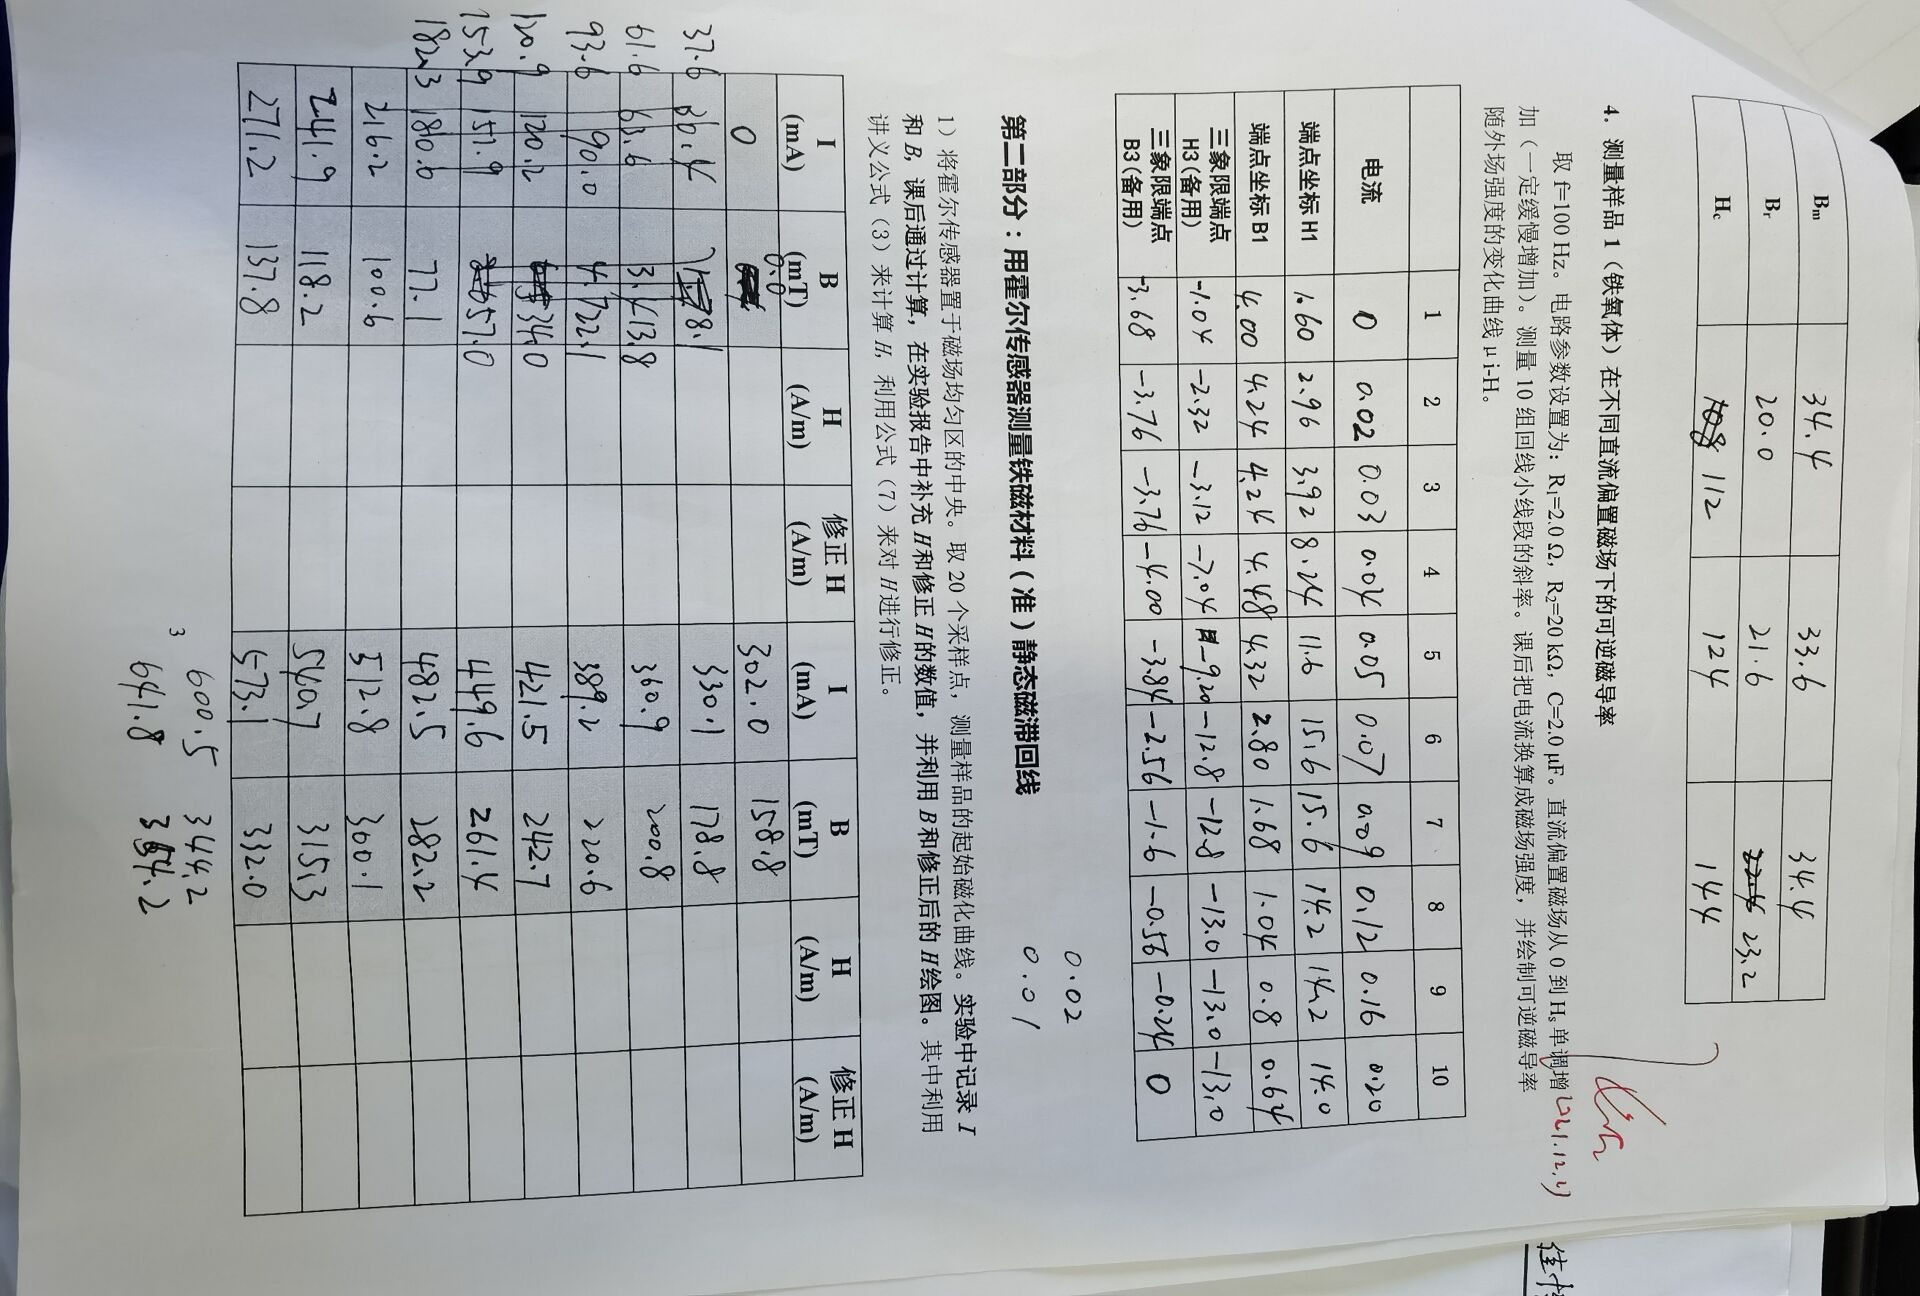 Bm 34.4 33.6 34.4
Br 20.0 21.6 23.2
Hc 112 124 144
4. 测量样品 1（铁氧体）在不同直流偏置磁场下的可逆磁导率
取 f=100 Hz。电路参数设置为: R₁=2.0 Ω, R₂=20 kΩ, C=2.0 μF。直流偏置磁场从 0 到 Hs 单调增
加（一定缓慢增加）。测量 10 组回线小线段的斜率。课后把电流换算成磁场强度，并绘制可逆磁导率
随外场强度的变化曲线 μ i-H。
2021.12.
1 2 3 4 5 6 7 8 9 10
电流 0 0.02 0.03 0.04 0.05 0.07 0.09 0.12 0.16 0.20
端点坐标 H1 1.60 2.96 3.92 8.24 11.6 15.6 15.6 14.2 14.2 14.0
端点坐标 B1 4.00 4.24 4.24 4.48 4.32 2.80 1.68 1.04 0.8 0.64
三象限端点 H3(备用) -1.04 -2.32 -3.12 -7.04 -9.20 -12.8 -12.8 -13.0 -13.0 -13.0
三象限端点 B3(备用) -3.68 -3.76 -3.76 -4.00 -3.84 -2.56 -1.6 -0.56 -0.24 0
0.02
0.01
第二部分：用霍尔传感器测量铁磁材料（准）静态磁滞回线
1）将霍尔传感器置于磁场均匀区的中央。取 20 个采样点，测量样品的起始磁化曲线。实验中记录 I
和 B，课后通过计算，在实验报告中补充 H 和修正 H 的数值，并利用 B 和修正后的 H 绘图。其中利用
讲义公式（3）来计算 H, 利用公式（7）来对 H 进行修正。
I (mA) B (mT) H (A/m) 修正 H (A/m) I (mA) B (mT) H (A/m) 修正 H (A/m)
0 0.0 302.0 158.8
37.6 36.4 8.1 330.1 178.8
61.6 63.6 13.8 360.9 200.8
93.6 90.0 22.1 389.2 220.6
120.9 120.2 34.0 421.5 242.7
153.9 151.9 57.0 449.6 261.4
182.3 180.6 77.1 482.5 282.2
216.2 100.6 512.8 300.1
241.9 118.2 540.7 315.3
271.2 137.8 573.1 332.0
600.5 344.2
641.8
3